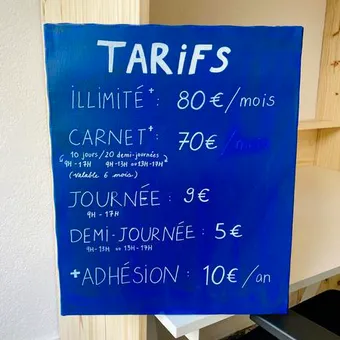 TARiFS
iLLiMiTÉ+: 80€/mois
CARNET+: 70€
(10 jours/20 demi-journées
9H-17H 9H-13H ou 13H-17H)
(valable 6 mois)
JOURNÉE: 9€
9H-17H
DEMI-JOURNÉE: 5€
9H-13H ou 13H-17H
+ADHÉSiON: 10€/an